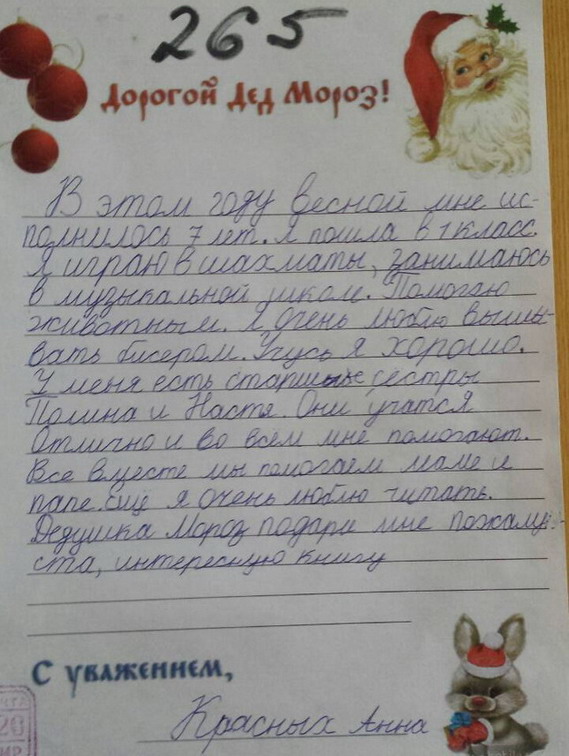 265
Дорогой Дед Мороз!
В этом году весной мне ис-
полнилось 7 лет. Я пошла в 1 класс.
Я играю в шахматы, занимаюсь
в музыкальной школе. Помогаю
животным. Я очень люблю выши-
вать бисером. Учусь я хорошо.
У меня есть старшие сёстры
Полина и Настя. Они учатся
отлично и во всём мне помогают.
Все вместе мы помогаем маме и
папе. Ещё я очень люблю читать.
Дедушка Мороз подари мне пожалуй-
ста, интересную книгу
С уважением,
Красных Анна
20